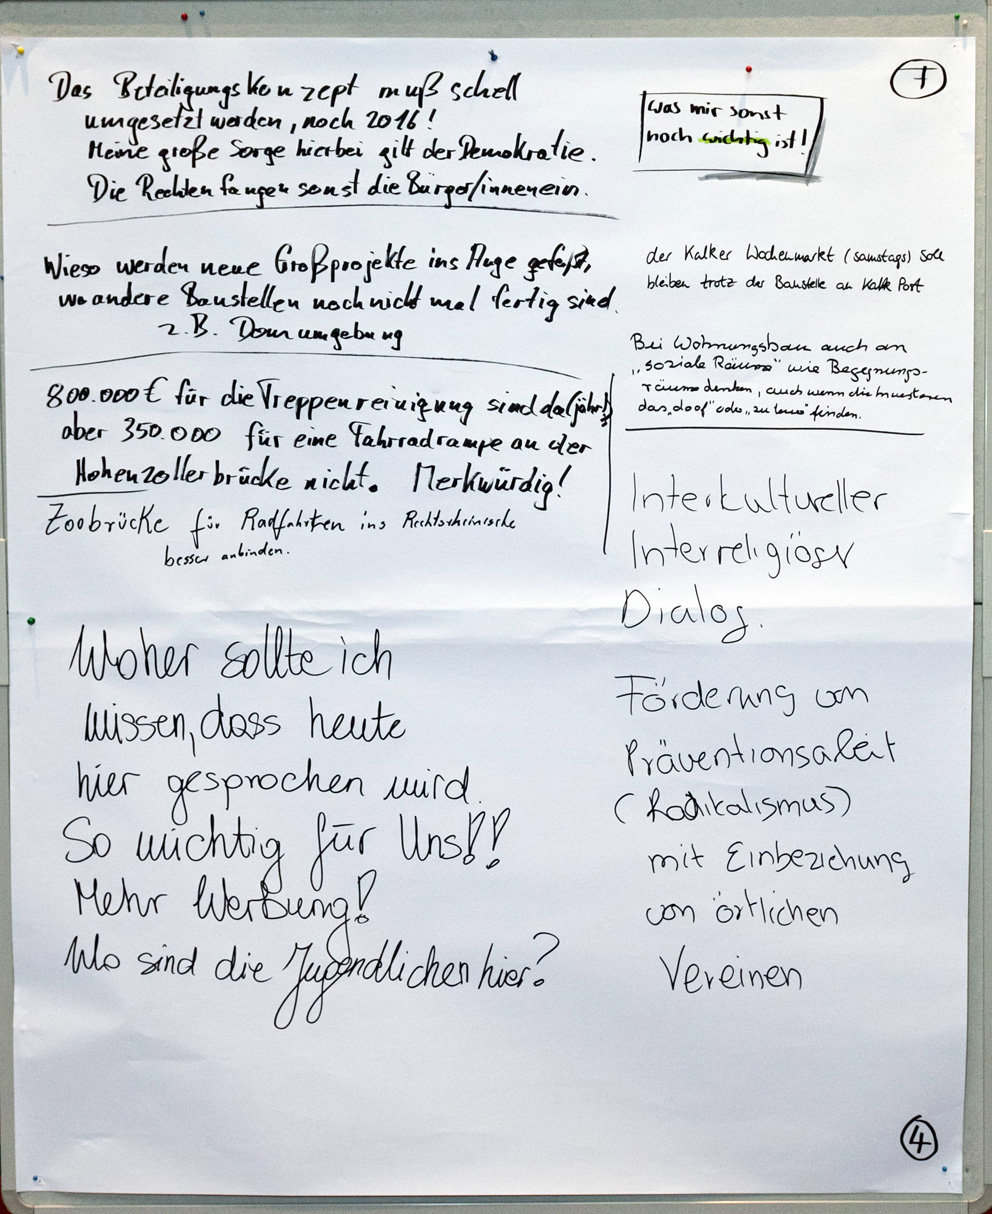 7
Was mir sonst
noch wichtig ist!
Das Beteiligungskonzept muß schell
umgesetzt werden, noch 2016!
Meine große Sorge hierbei gilt der Demokratie.
Die Rechten fangen sonst die Bürger/innen ein.
Wieso werden neue Großprojekte ins Auge gefaßt,
wo andere Baustellen noch nicht mal fertig sind.
z.B. Domumgebung
800.000 € für die Treppenreinigung sind da (jährl.)
aber 350.000 für eine Fahrradrampe an der
Hohenzollerbrücke nicht. Merkwürdig!
Zoobrücke für Radfahrten ins Rechtsrheinische
besser anbinden.
Woher sollte ich
wissen, dass heute
hier gesprochen wird.
So wichtig für Uns!!
Mehr Werbung!
Wo sind die Jugendlichen hier?
der Kalker Wochenmarkt (samstags) soll
bleiben trotz der Baustelle an Kalk Post
Bei Wohnungsbau auch an
„soziale Räume" wie Begegnungs-
räume denken, auch wenn die Investoren
das „doof" oder „zu teuer" finden.
Interkultureller
Interreligiöser
Dialog.
Förderung von
Präventionsarbeit
(Radikalismus)
mit Einbeziehung
von örtlichen
Vereinen
4